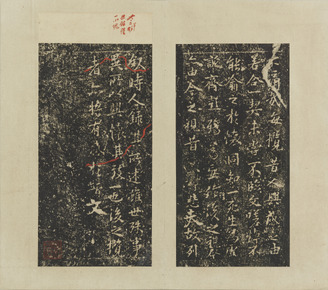 每攬昔人興感之由
若合一契未嘗不臨文嗟悼不
能喻之於懷固知一死生為虛
誕齊彭殤為妄作後之視今
亦由今之視昔悲夫故列
叙時人錄其所述雖世殊事
異所以興懷其致一也後之攬
者亦將有感於斯文